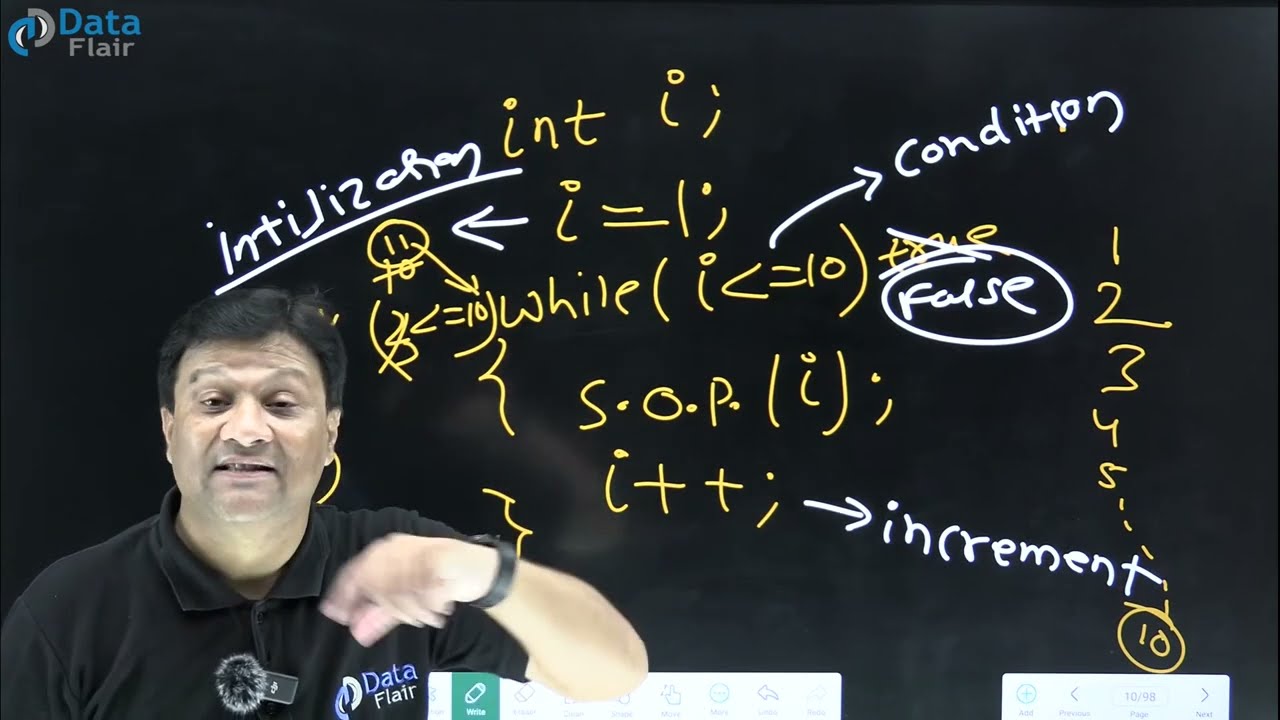 Data
Flair
int i;
intilization
i=1;
condition
11
10
(<=10)
while(i<=10)
true
False
{
S.O.P.(i);
i++;
increment
}
1
2
3
4
5
10
Data
Flair
Write
Eraser
Clean
Shape
Move
More
Undo
Redo
Add
Previous
10/98
Page
Next